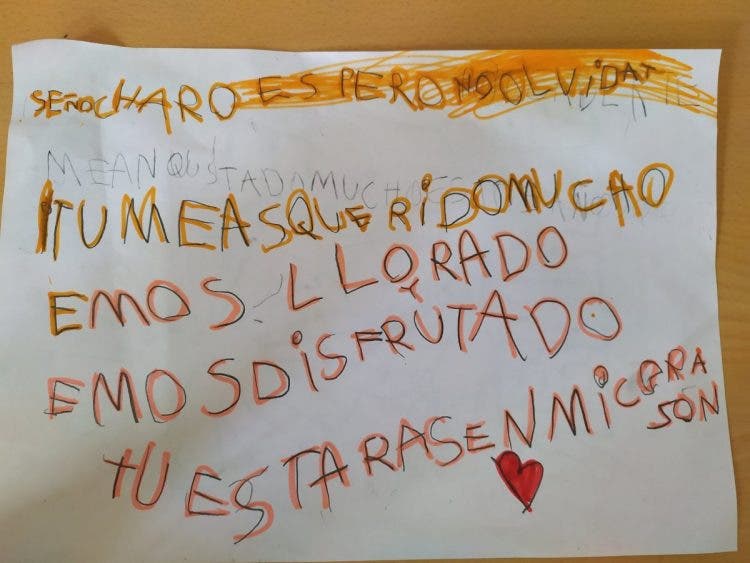 SEÑOCHARO ESPERO NO OLVIDAR
MEANQUSTADAMUCHO
ITUMEASQUERIDOMUCHO
EMOS LLORADO
Y
EMOSDISFRUTADO
TUESTARASENMICORA
SON